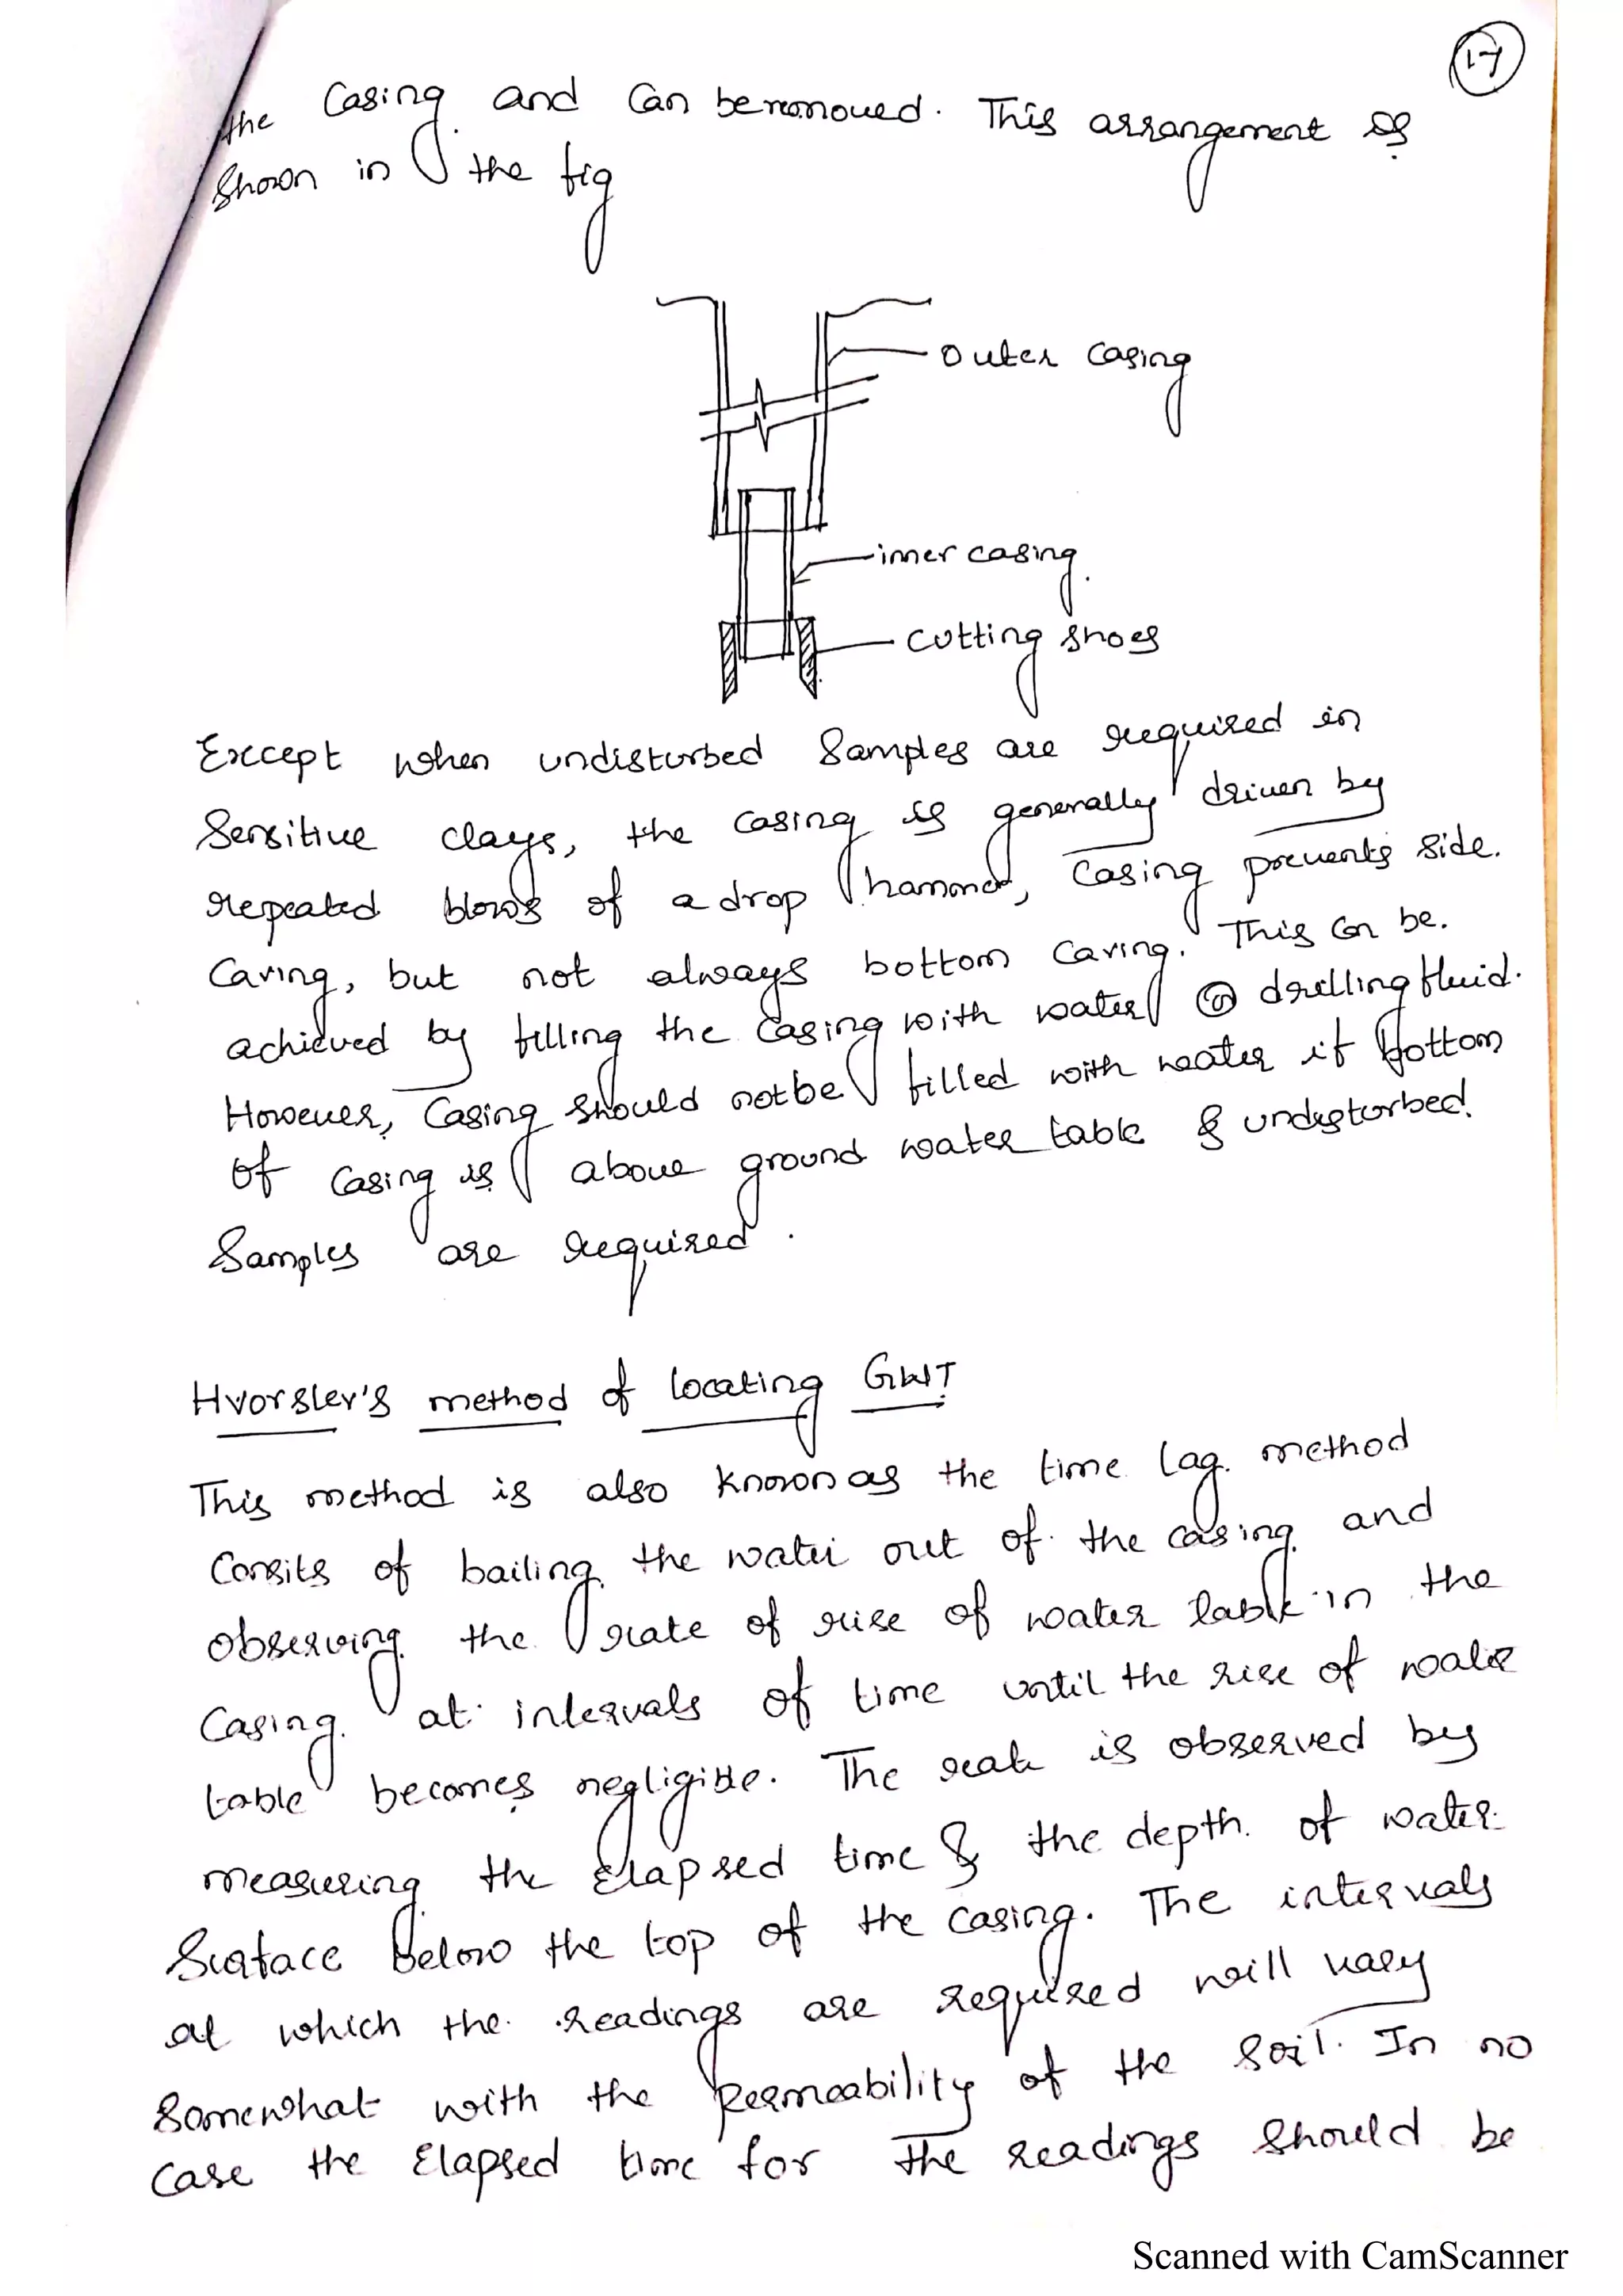 17
the casing and can be removed. This arrangement is
shown in the fig
outer casing
inner casing.
cutting shoes
Except when undisturbed samples are required in
sensitive clays, the casing is generally driven by
repeated blows of a drop hammer, casing prevents side.
caving, but not always bottom caving. This can be.
achieved by filling the casing with water or drilling fluid.
However, casing should not be filled with water if bottom
of casing is above ground water table & undisturbed.
samples are required.
Hvorslev's method of locating GWT
This method is also known as the time lag. method
consits of bailing the water out of the casing and
observing the rate of rise of water table in the
casing. at intervals of time until the rise of water
table becomes negligible. The rate is observed by
measuring the Elapsed time & the depth. of water
surface below the top of the casing. The intervals
at which the readings are required will vary
somewhat with the permeability of the soil. In no
case the Elapsed time for the readings should be
Scanned with CamScanner